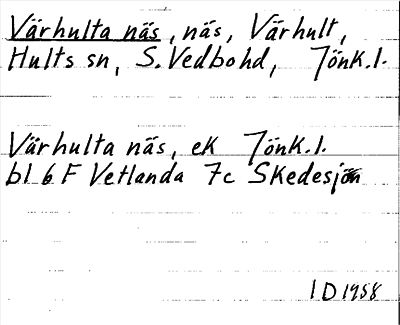 Värhulta näs, näs, Värhult,
Hults sn, S. Vedbo hd, Jönk. l.
Värhulta näs, ek Jönk. l.
bl 6 F Vetlanda 7c Skedesjön
I D 1958